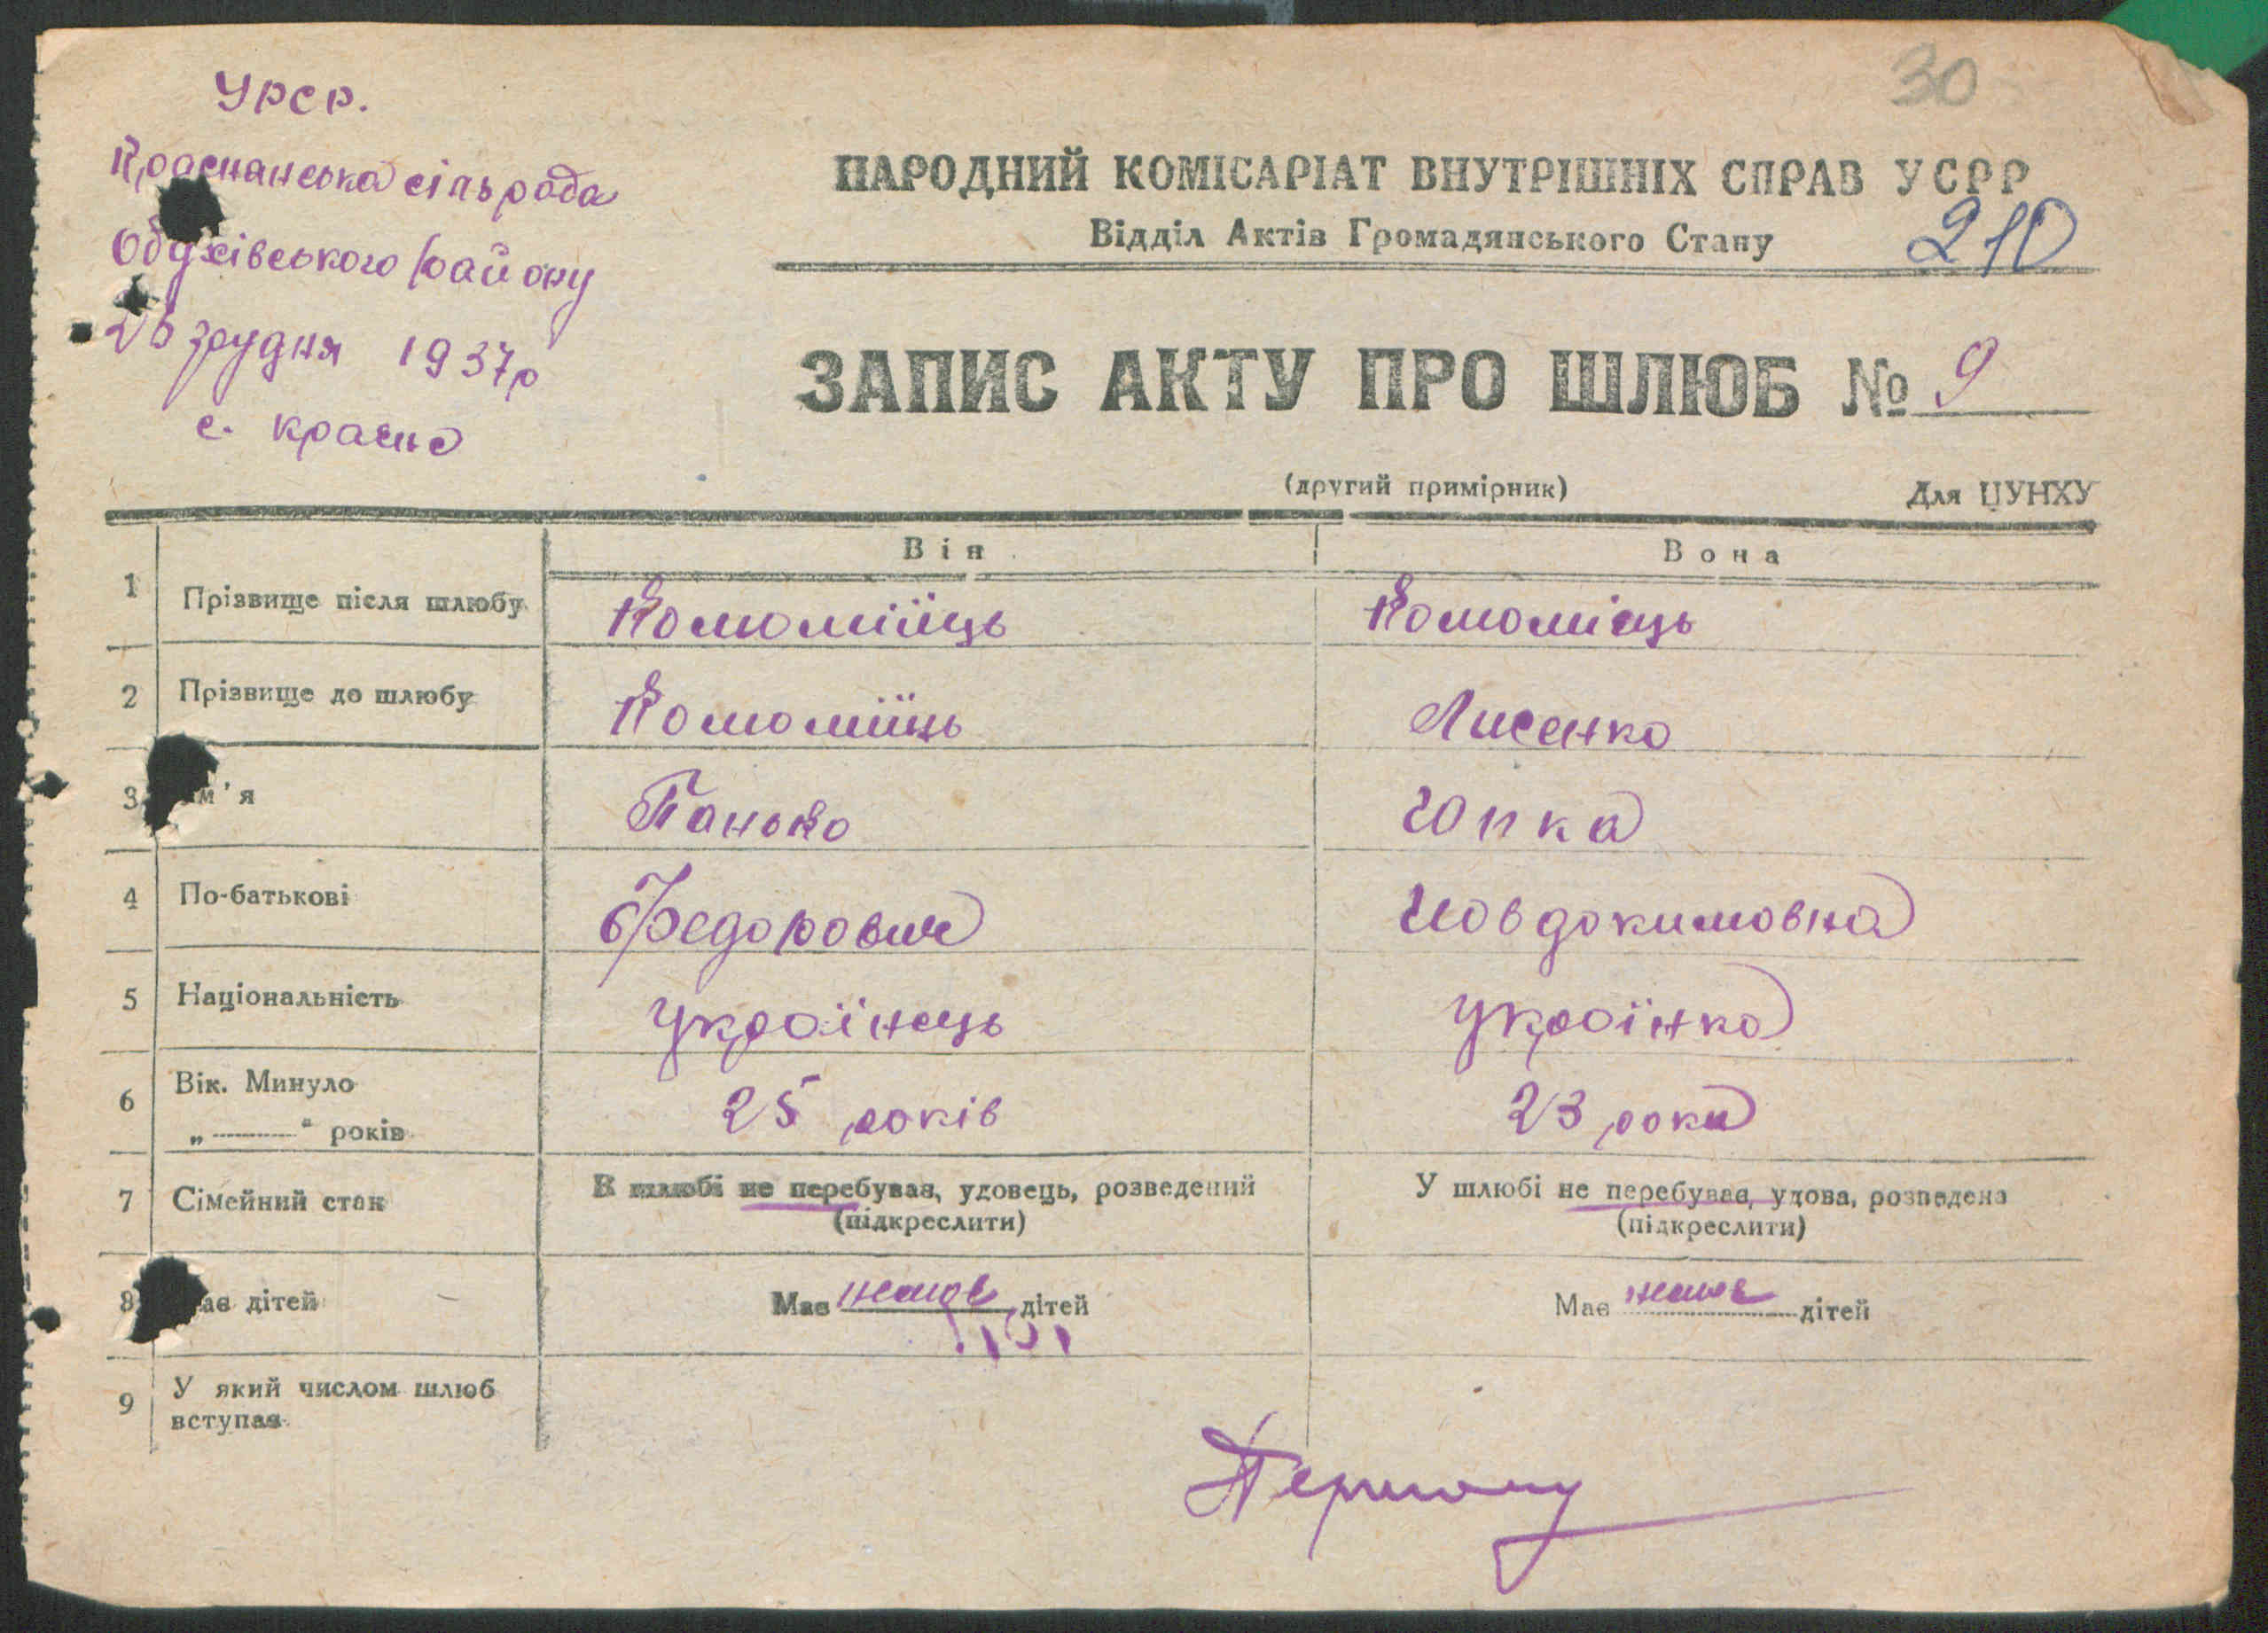 30
УРСР.
Краснанська сільрада
Обухівського району
26 грудня 1937р
с. красне
НАРОДНИЙ КОМІСАРІАТ ВНУТРІШНІХ СПРАВ УСРР
Відділ Актів Громадянського Стану
210
ЗАПИС АКТУ ПРО ШЛЮБ № 9
(другий примірник)
Для ЦУНХУ
Він Вона
1 Прізвище після шлюбу Коломіїць Коломієць
2 Прізвище до шлюбу Коломіїць Лисенко
3 Ім'я Панько
4 По-батькові Федорович Иовдокимовна
5 Національність українець українка
6 Вік. Минуло 25 років 23 роки
„ “ років
7 Сімейний стан В шлюбі не перебував, удовець, розведений У шлюбі не перебувае, удова, розведена
(підкреслити) (підкреслити)
8 ає дітей Має немає дітей Має немає дітей
9 У який числом шлюб
вступав
Першому